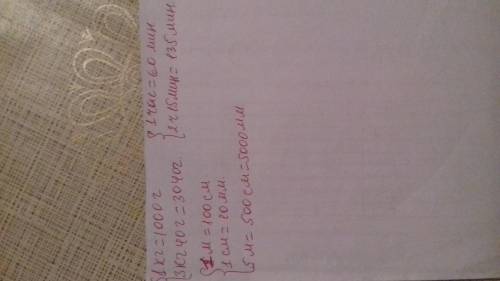 1 кг = 1000 г
3 кг 40 г = 3040 г
1 час = 60 мин
1 ч 15 мин = 135 мин
1 м = 100 см
1 см = 10 мм
5 м = 500 см = 5000 мм